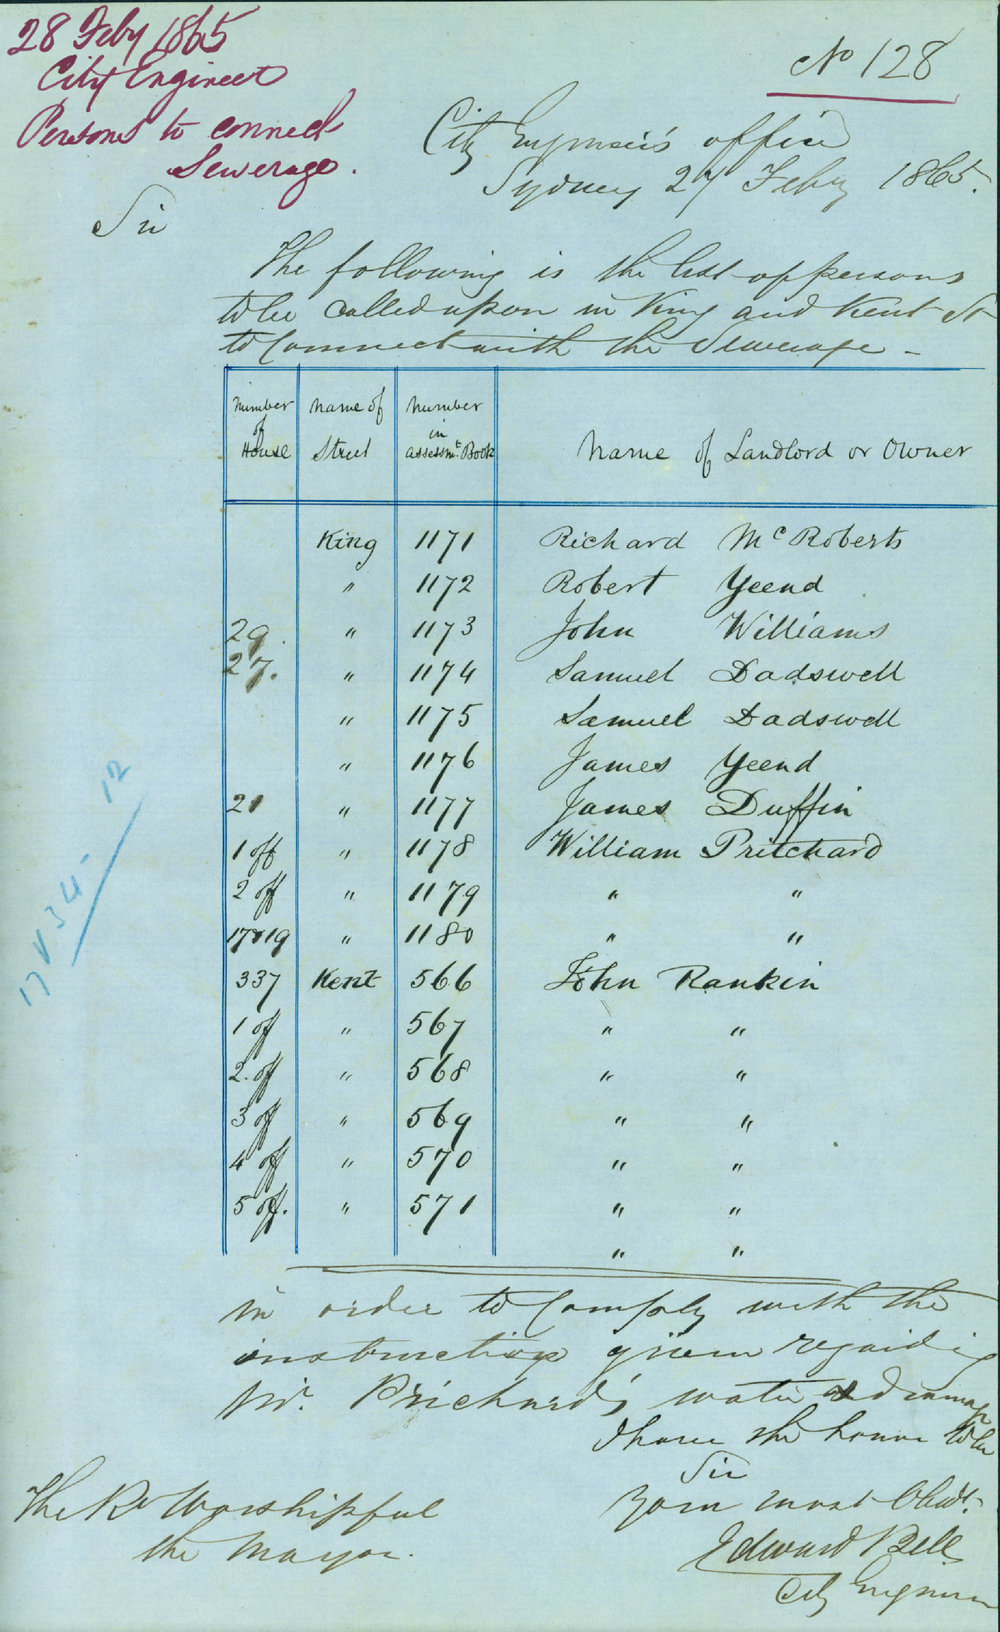 28 Feby 1865
City Engineer
Persons to connect
Sewerage.
No 128
City Engineer's office
Sydney 27 Feby 1865.
Sir
The following is the list of persons
to be called upon in King and Kent St
to Connect with the Sewerage -
Number of House | Name of Street | Number in Assessmt. Book | Name of Landlord or Owner
King 1171 Richard McRoberts
" 1172 Robert Yeend
29. " 1173 John Williams
27. " 1174 Samuel Dadswell
" 1175 Samuel Dadswell
" 1176 James Yeend
21 " 1177 James Duffin
1 off " 1178 William Pritchard
2 off " 1179 " "
17&19 " 1180 " "
337 Kent 566 John Rankin
1 of " 567 " "
2. of " 568 " "
3 off " 569 " "
4 off " 570 " "
5 off. " 571 " "
" "
in order to Comply with the
instruction given regarding
Mr. Prichard's water & drainage
I have the honor to be
Sir
Your most Obedt.
Edward Bell
City Engineer
The Rt Worshipful
the Mayor.